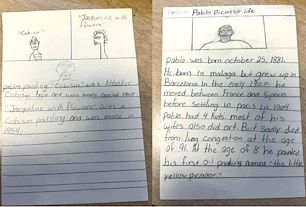 "Cubism"
"Jacqueline with
flowers"
Cubism type and was made
"Jacqueline with Flowers" was a
Cubism painting and was made in
1954
Pablo Picasso life
pablo was born october 25, 1881.
He born in malaga but grew up in
Barcelona. In the early 190 he
moved between France and Spain
before settling in paris in 1904
Pablo had 4 kids. most of his
wifes also did art. But sadly died
from lung congestion at the age
of 91. At the age of 8 he painted
his first oil painting named "the little
yellow picador"